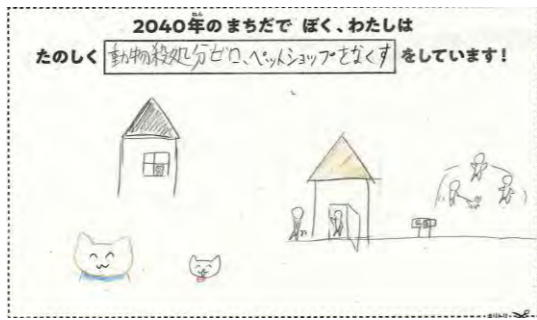 2040年のまちだで ぼく、わたしは
たのしく 動物殺処分ゼロ、ペットショップをなくす をしています!
キリトリ